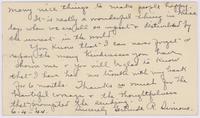 many nice things to make people happy.
It is really a wonderful thing in these
days when we are all so upset & disturbed by
the unrest in the world.
You know that I can never forget or
repay the many kindnesses you have
shown me. You will be glad to know
that I have had no trouble with my back
for 6 months. Thanks so much for the
beautiful corsage & the thoughtfulness
that prompted the sending.
6-4-44. Sincerely, Gertrude R.